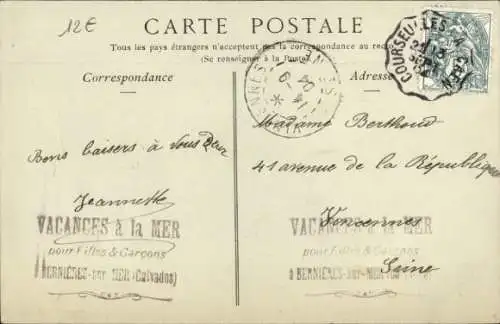 12€
CARTE POSTALE
Tous les pays étrangers n'acceptent pas la correspondance au recto
(Se renseigner à la Poste)
Correspondance
Adresse
COURSEULLES A CAEN
Bons baisers à vous deux
Jeannette
VACANCES à la MER
pour Filles & Garçons
à BERNIÈRES-sur-MER (Calvados)
Madame Berthoud
41 avenue de la République
Vincennes
Seine
VACANCES à la MER
pour Filles & Garçons
à BERNIÈRES-sur-MER